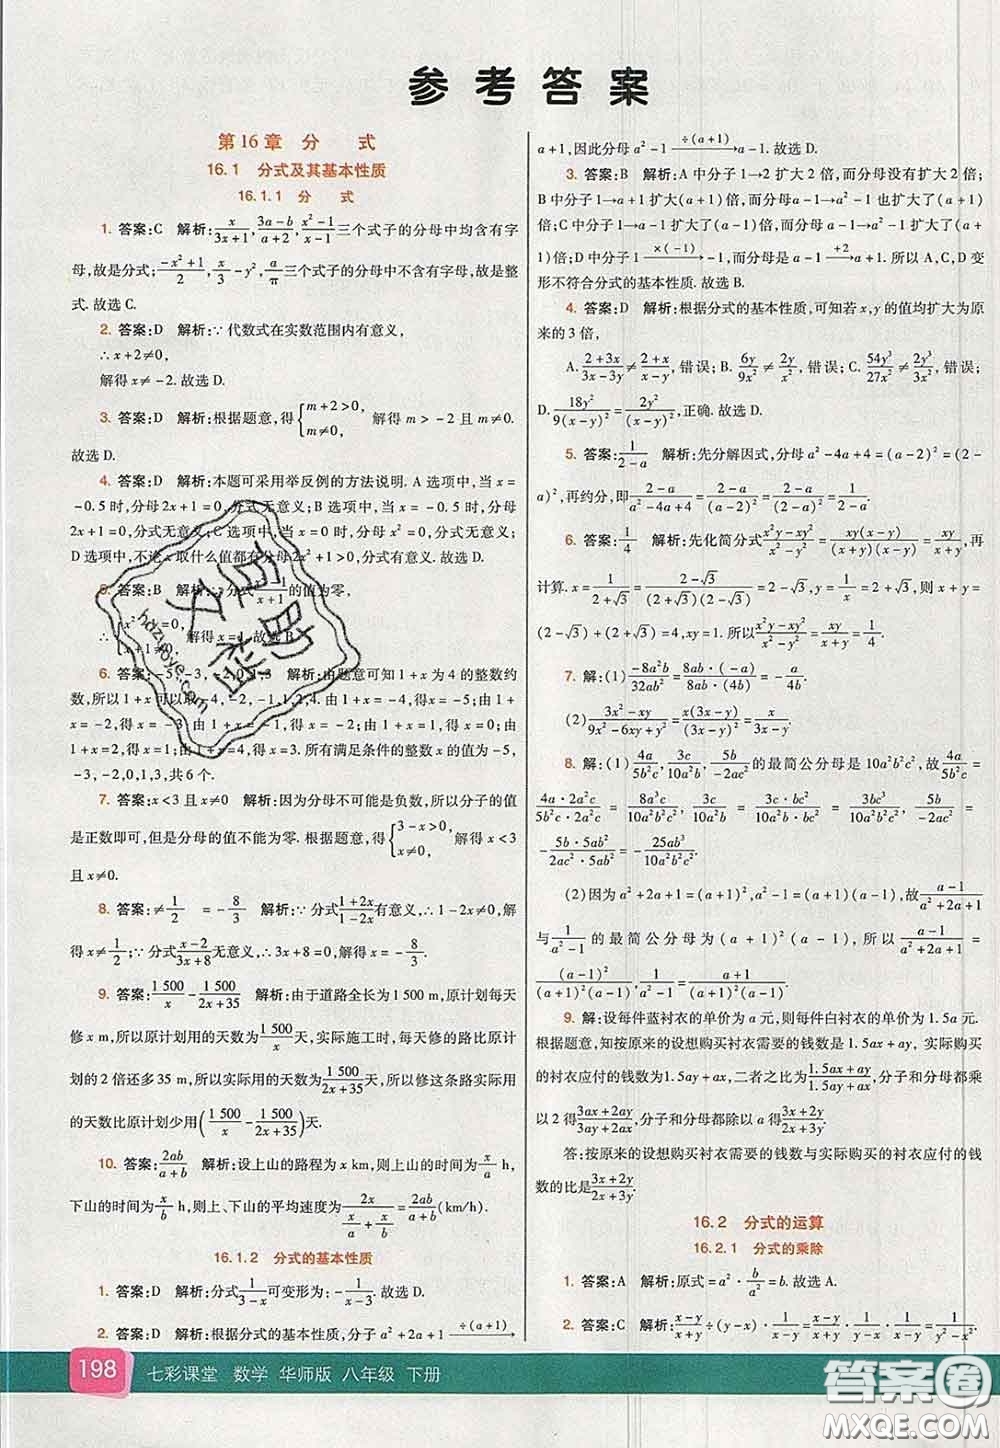 参考答案
第16章 分 式
16.1 分式及其基本性质
16.1.1 分 式
1. 答案:C 解析:x/(3x+1), (3a-b)/(a+2), (x²-1)/(x-1)三个式子的分母中均含有字
母,故是分式;(-x²+1)/2, x/3-y², a/π三个式子的分母中不含有字母,故是整
式.故选 C.
2. 答案:D 解析:∵代数式在实数范围内有意义,
∴x+2≠0,
解得 x≠-2.故选 D.
3. 答案:D 解析:根据题意,得{m+2>0, m-1≠0, 解得 m>-2 且 m≠0.
故选 D.
4. 答案:D 解析:本题可采用举反例的方法说明. A 选项中,当 x=
-0.5 时,分母 2x+1=0,分式无意义;B 选项中,当 x=-0.5 时,分母
2x+1=0,分式无意义;C 选项中,当 x=0 时,分母 x²=0,分式无意义;
D 选项中,不论 x 取什么值都有分母 2x²+1>0,分式有意义.故选 D.
答案:B 解析:∵分式 的值为零,
解得 x=1.故选 B.
6. 答案:-5,-3,-2,0,1,3 解析:由题意可知 1+x 为 4 的整数约
数,所以 1+x 可以取-4,-2,-1,1,2,4. 由 1+x=-4,得 x=
-5;由 1+x=-2,得 x=-3;由 1+x=-1,得 x=-2;由 1+x=1,得 x=0;由 1+
x=2,得 x=1;由 1+x=4,得 x=3. 所有满足条件的整数 x 的值为-5,
-3,-2,0,1,3,共 6 个.
7. 答案:x<3 且 x≠0 解析:因为分母不可能是负数,所以分子的值
是正数即可,但是分母的值不能为零. 根据题意,得{3-x>0, x≠0. 解得 x<3
且 x≠0.
8. 答案:≠1/2 =-8/3 解析:∵分式(1+2x)/(1-2x)有意义,∴1-2x≠0,解
得 x≠1/2;∵分式(x-2)/(3x+8)无意义,∴3x+8=0,解得 x=-8/3.
9. 答案:1 500/x-1 500/(2x+35) 解析:由于道路全长为 1 500 m,原计划每天
修 x m,所以原计划用的天数为1 500/x,实际施工时,每天修的路比原计
划的 2 倍还多 35 m,所以用的天数为1 500/(2x+35),所以修这条路实际用
的天数比原计划少用(1 500/x-1 500/(2x+35))天.
10. 答案:2ab/(a+b) 解析:设上山的路程为 x km,则上山的时间为 x/a h,
下山的时间为 x/b h,则上、下山的平均速度为 2x/(x/a+x/b)=2ab/(a+b)(km/h).
16.1.2 分式的基本性质
1. 答案:D 解析:分式1/(3-x)可变形为:-1/(x-3).故选 D.
2. 答案:D 解析:根据分式的基本性质,分子 a²+2a+1 ÷(a+1)→
a+1,因此分母 a²-1 ÷(a+1)→ a-1.故选 D.
3. 答案:B 解析:A 中分子 1→2 扩大 2 倍,而分母没有扩大 2 倍;B
中分子 1→a+1 扩大了(a+1)倍,而分母 a-1→a²-1 扩大了(a+
1)倍;D 中分子 1 ×(-1)→ -1,而分母 a-1 +2→ a+1. 所以 A,C,D 变
形不符合分式的基本性质.故选 B.
4. 答案:D 解析:根据分式的基本性质,可知若 x,y 的值均扩大为原
来的 3 倍,
A. (2+3x)/(3x-3y)≠(2+x)/(x-y),错误;B. 6y/9x²≠2y/x²,错误;C. 54y³/27x²≠2y³/3x²,错误;
D. 18y²/9(x-y)²=2y²/(x-y)²,正确. 故选 D.
5. 答案:1/(2-a) 解析:先分解因式,a²-4a+4=(a-2)²=(2-
a)²,再约分,即(2-a)/(a²-4a+4)=(2-a)/(a-2)²=(2-a)/(2-a)²=1/(2-a).
6. 答案:1/4 解析:先化简分式(x²y-xy²)/(x²-y²)=xy(x-y)/((x+y)(x-y))=xy/(x+y),再
计算. x=1/(2+√3)=(2-√3)/((2+√3)(2-√3))=2-√3, y=1/x=2+√3,则 x+y=
(2-√3)+(2+√3)=4,xy=1. 所以(x²y-xy²)/(x²-y²)=xy/(x+y)=1/4.
7. 解:(1)-8a²b/32ab²=8ab·(-a)/(8ab·4b)=-a/4b.
(2)(3x²-xy)/(9x²-6xy+y²)=x(3x-y)/(3x-y)²=x/(3x-y).
8. 解:(1)4a/5b²c, 3c/10a²b, 5b/-2ac²的最简公分母是 10a²b²c²,故4a/5b²c=
4a·2a²c/(5b²c·2a²c)=8a³c/10a²b²c², 3c/10a²b=3c·bc²/(10a²b·bc²)=3bc³/10a²b²c², 5b/-2ac²=
-5b·5ab²/(2ac²·5ab²)=-25ab³/10a²b²c².
(2)因为 a²+2a+1=(a+1)²,a²-1=(a+1)(a-1),故(a-1)/(a²+2a+1)
与1/(a²-1)的最简公分母为(a+1)²(a-1),所以(a-1)/(a²+2a+1)=
(a-1)²/((a+1)²(a-1)), 1/(a²-1)=(a+1)/((a+1)²(a-1)).
9. 解:设每件蓝衬衣的单价为 a 元,则每件白衬衣的单价为 1.5a 元.
根据题意,知按原来的设想购买衬衣需要的钱数是 1.5ax+ay,实际购买
的衬衣应付的钱数为 1.5ay+ax,二者之比为(1.5ax+ay)/(1.5ay+ax).分子和分母都乘
以 2 得(3ax+2ay)/(3ay+2ax),分子和分母都除以 a 得(3x+2y)/(3y+2x).
答:按原来的设想购买衬衣需要的钱数与实际购买的衬衣应付的钱
数的比是(3x+2y)/(2x+3y).
16.2 分式的运算
16.2.1 分式的乘除
1. 答案:A 解析:原式=a²·b/a²=b.故选 A.
2. 答案:C 解析:(x-y)/(x+y)÷(x-y)·1/(x-y)=(x-y)/(x+y)·1/(x-y)·1/(x-y)=1/(x²-y²).
198 七彩课堂 数学 华师版 八年级 下册
hdzuoye.com
答案圈
MXQE.COM